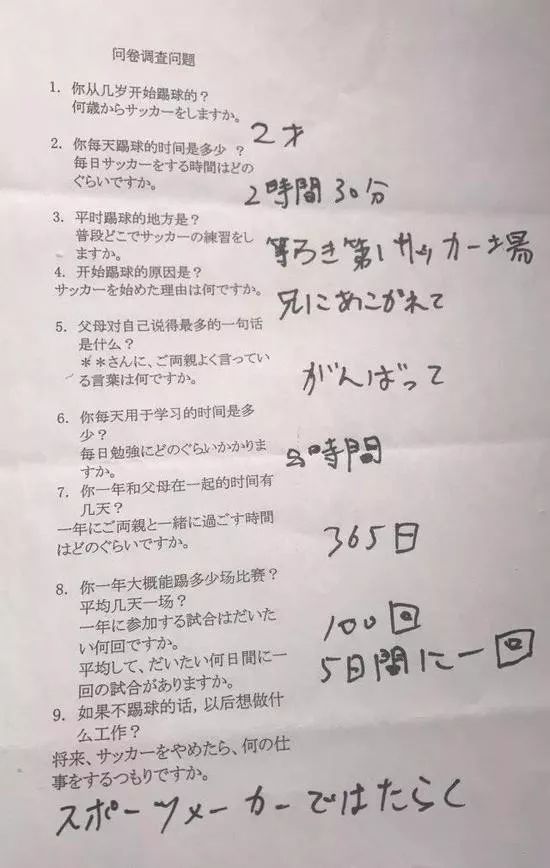 问卷调查问题
1. 你从几岁开始踢球的？
何歳からサッカーをしますか。
2才
2. 你每天踢球的时间是多少 ？
毎日サッカーをする時間はどの
ぐらいですか。
2時間30分
3. 平时踢球的地方是？
普段どこでサッカーの練習をし
ますか。
等ろき第1サッカー場
4. 开始踢球的原因是？
サッカーを始めた理由は何ですか。
兄にあこがれて
5. 父母对自己说得最多的一句话
是什么？
＊＊さんに、ご両親よく言ってい
る言葉は何ですか。
がんばって
6. 你每天用于学习的时间是多
少？
毎日勉強にどのぐらいかかりま
すか。
時間
7. 你一年和父母在一起的时间有
几天？
一年にご両親と一緒に過ごす時間
はどのぐらいですか。
365日
8. 你一年大概能踢多少场比赛？
平均几天一场？
一年に参加する試合はだいた
い何回ですか。
平均して、だいたい何日間に一
回の試合がありますか。
100回
5日間に一回
9. 如果不踢球的话，以后想做什
么工作？
将来、サッカーをやめたら、何の仕
事をするつもりですか。
スポーツメーカーではたらく